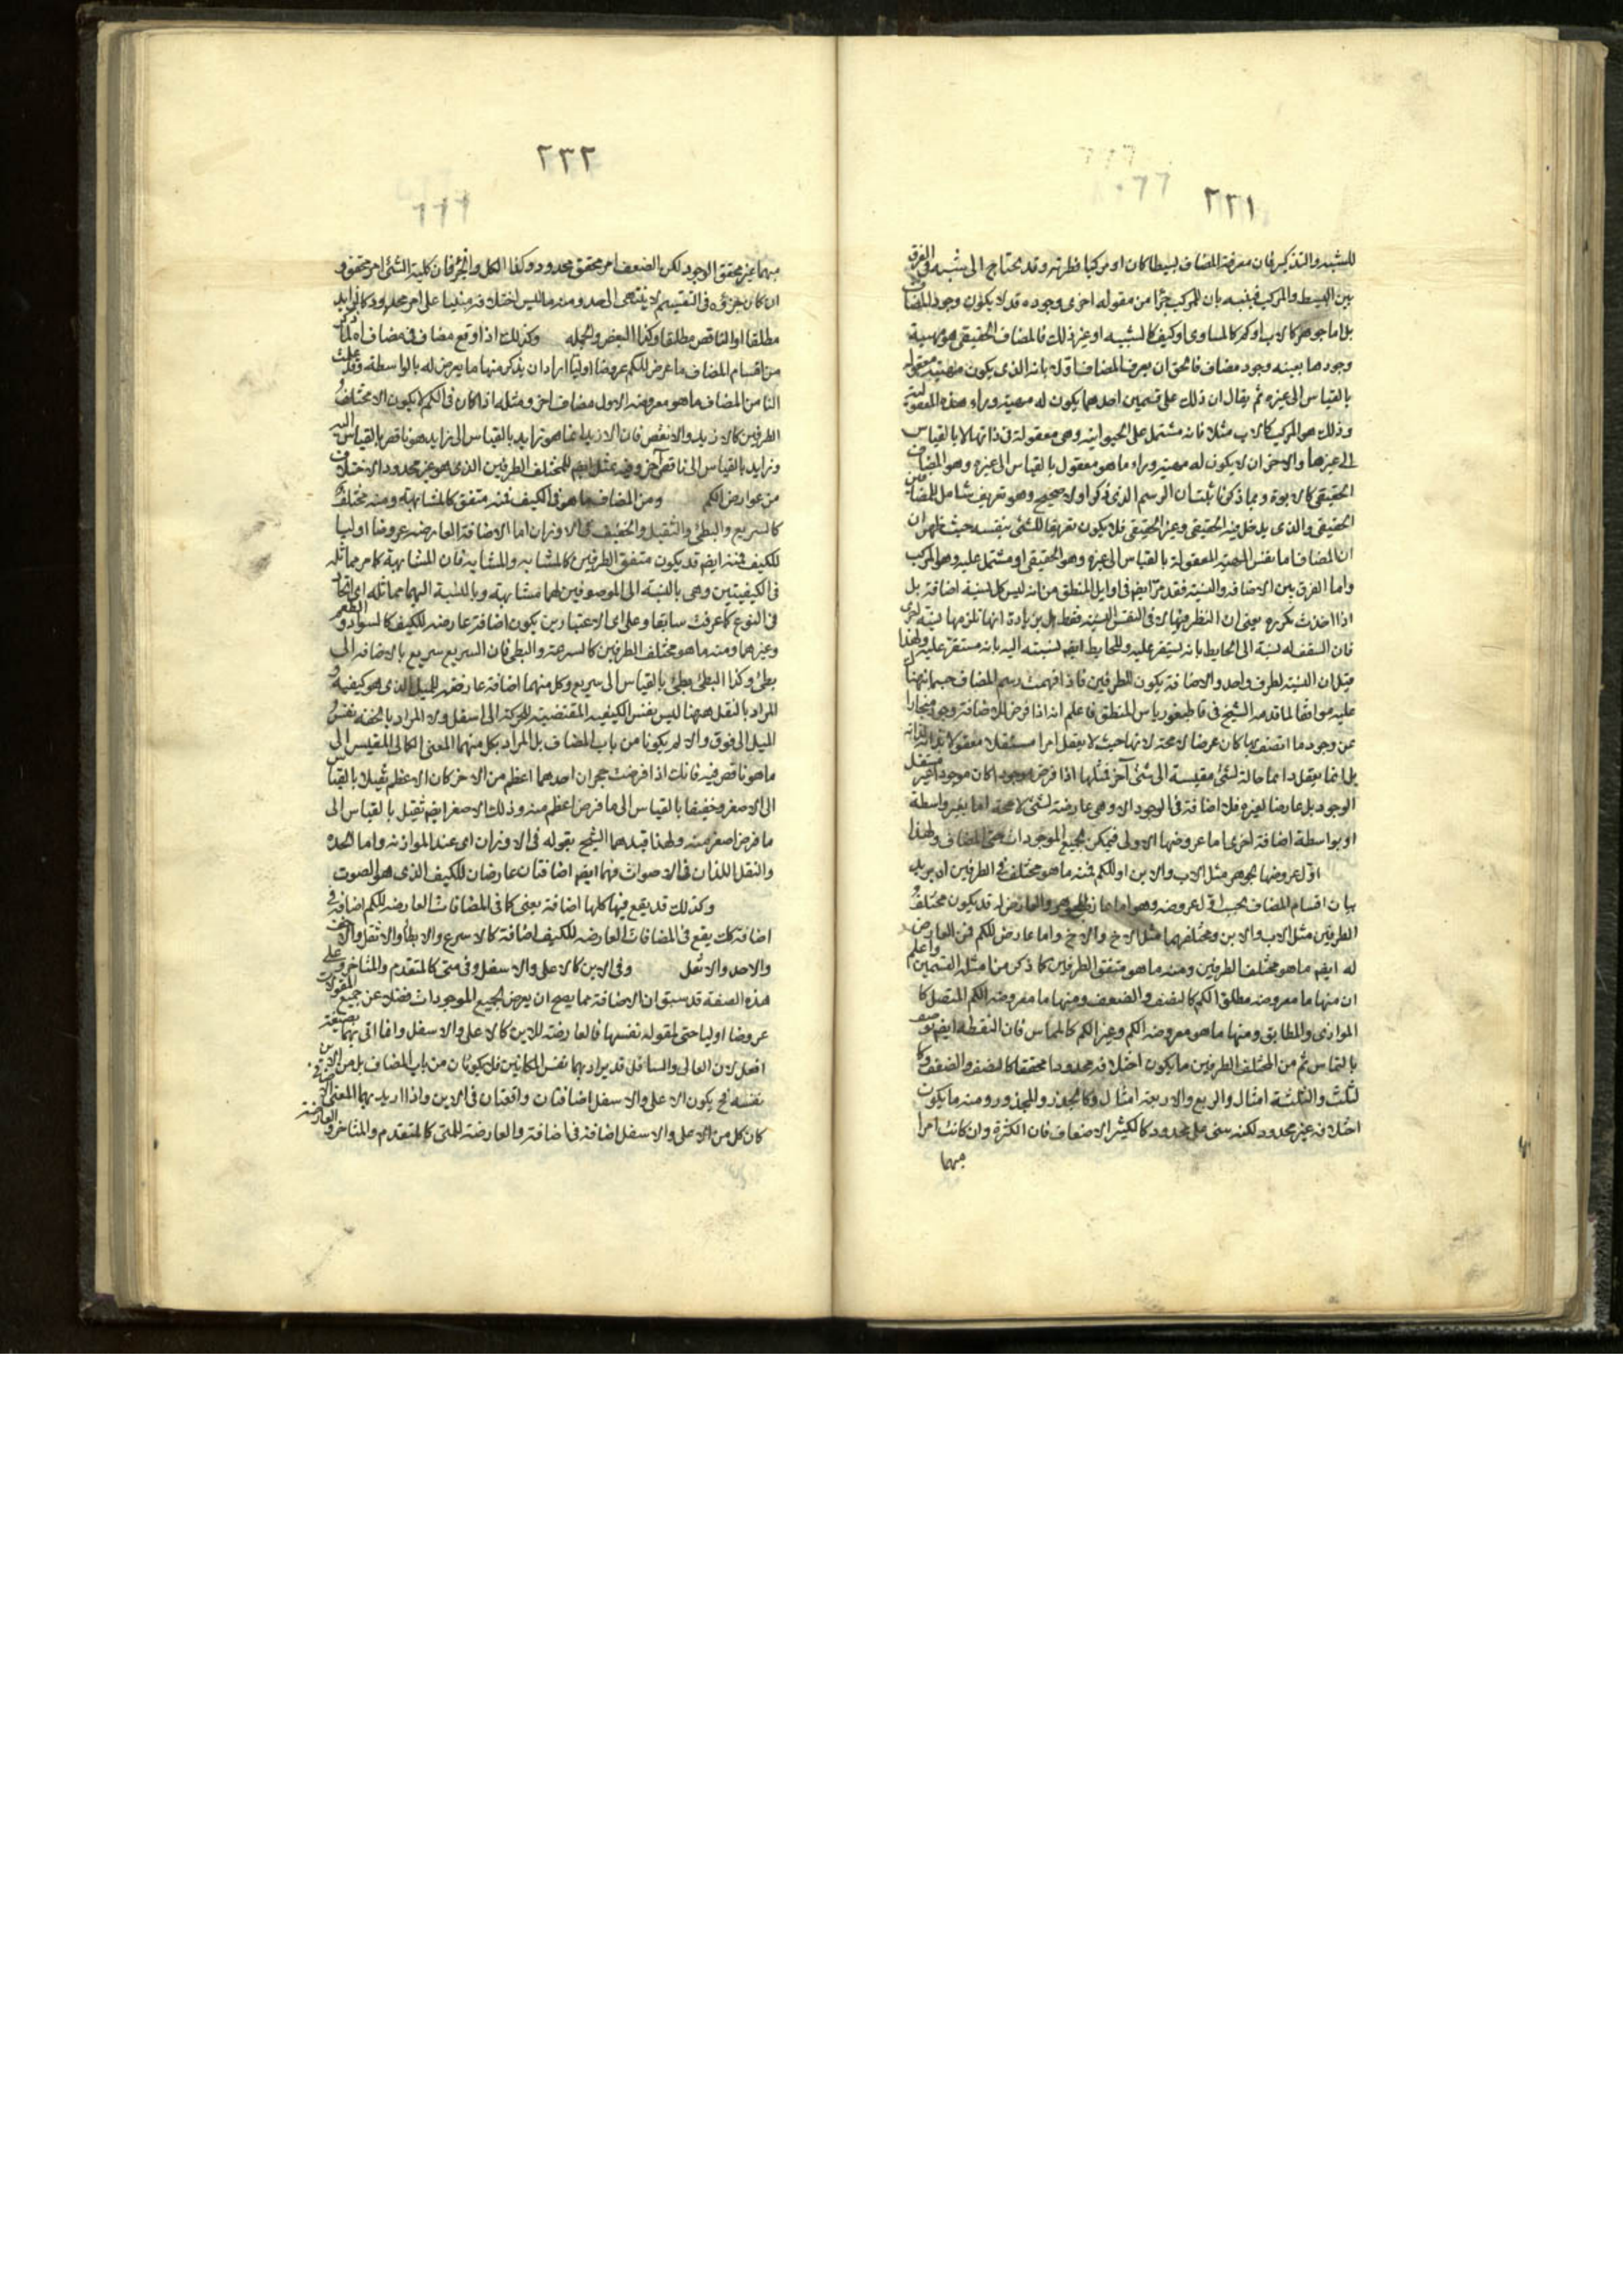 ٢٣١
للتنبيه والتذكير فان معرفة المضاف بسيطا كان او مركبا فطرية وقد يحتاج الى تنبيه فى الفرق
بين البسيط والمركب فينبه بان المركب جزأ من مقولة اخرى وجوده قد لا يكون وجود المضاف
بل اما جوهر كالاب او كم كالمساوى او كيف كالشبيه او غير ذلك فالمضاف الحقيقى هو مهية
وجودها بعينه وجود مضاف فالحق ان يعرف المضاف اولا بانه الذى يكون مهيته معقولة
بالقياس الى غيره ثم يقال ان ذلك على قسمين احدهما يكون له مهية وراء هذه المعقولية
وذلك هو المركب كالاب مثلا فانه مشتمل على الحيوانية وهى معقولة فى ذاتها لا بالقياس
الى غيرها والاخر ان لا يكون له مهية وراء ما هو معقول بالقياس الى غيره وهو المضاف
الحقيقى كالابوة وبما ذكرنا ثبت ان الرسم الذى ذكر اولا صحيح وهو تعريف شامل للمضاف
الحقيقى والذى يدخل فيه الحقيقى وغير الحقيقى فلا يكون تعريفا للشئ بنفسه حيث ظهر ان
ان المضاف اما نفس المهية المعقولة بالقياس الى غيره وهو الحقيقى او مشتمل عليه وهو المركب
واما الفرق بين الاضافة والنسبة فقد مر ايضا فى اوايل المنطق من انه ليس كل نسبة اضافة بل
اذا اخذت مكررة بمعنى ان النظر فيها لا فى النفس النسبة فقط بل بزيادة انها تلزمها نسبة اخرى
فان السقف له نسبة الى الحايط بانه يستقر عليه وللحايط ايضا نسبته اليه بانه مستقر عليه ولهذا
قيل ان النسبة لطرف واحد والاضافة يكون للطرفين فاذا فهمت رسم المضاف حسبما نبهنا
عليه موافقا لما قدمه الشيخ فى قاطيغورياس المنطق فاعلم انه اذا فرض للاضافة وجود
عن وجود ما اتصف بها كان عرضا لا محة لانها حيث لا يعقل امرا مستقلا معقولا بذاته لذاته
بل انما يعقل دايما حالة لشئ مقيسة الى شئ آخر فمثلها اذا فرض موجودا كان موجودا غير مستقل
الوجود بل عارضا لغيره فلا اضافة فى الوجود الا وهى عارضة لشئ لا محة اما بغير واسطة
او بواسطة اضافة اخرى اما عروضها الاولى فيمكن لجميع الموجودات حتى المضاف ولهذا
اول عروضها لجوهر مثل الاب والابن او للكم فمنه ما هو مختلف فى الطرفين اه يريد
بيان اقسام المضاف بحسب اول عروضه وهو اما عارض للجوهر والعارض له قد يكون مختلف
الطرفين مثل الاب والابن ومتفقهما مثل الاخ والاخ واما عارض للكم فمن العارض
له ايضا ما هو مختلف الطرفين ومنه ما هو متفق الطرفين كما ذكر من امثلة القسمين واعلم
ان منها ما معروضه مطلق الكم كالنصف والضعف ومنها ما معروضه الكم المتصل كا
الموازى والمطابق ومنها ما هو معروضه الكم وغير الكم كالمماس فان النقطة ايضا توصف
بالتماس ثم من المختلف الطرفين ما يكون اختلافه محدودا محققا كالنصف والضعف وكا
لثلث والثلثة امثال والربع والاربعة امثال وكالجذر والمجذور ومنه ما يكون
اختلافه غير محدود لكنه مبنى على محدود كالكثير الاضعاف فان الكثرة وان كانت امرا
مبهما
٢٣٢
مبهما غير محقق الوجود لكن الضعف امر محقق محدود وكذا الكل والجزء فان كلية الشئ امر محقق و
ان كان جزؤه فى التقسيم لا ينتهى الى حد ومنه ما ليس اختلافه مبنيا على امر محدود كالزايد
مطلقا او الناقص مطلقا وكذا البعض والجملة وكذلك اذا وقع مضاف فى مضاف اه لما كان
من اقسام المضاف ما عرض للكم عروضا اوليا اراد ان يذكر منها ما يعرض له بالواسطة وقد علمت
ان من المضاف ما هو معروضه الاول مضاف اخر ومثله اذا كان فى الكم لا يكون الا مختلف
الطرفين كالازيد والانقص فان الازيد انما هو زايد بالقياس الى زايد هو ناقص بالقياس اليه
وزايد بالقياس الى ناقص آخر وفيه مثل ايضا للمختلف الطرفين الذى هو غير محدود الاختلاف
من عوارض الكم ومن المضاف ما هو فى الكيف فمنه متفق كالمشابهة ومنه مختلف
كالسريع والبطئ والثقيل والخفيف فى الاوزان اما الاضافة العارضة عروضا اوليا
للكيف فمنه ايضا قد يكون متفق الطرفين كالمشابه والمشابه فان المشابهة كما مر مماثلة
فى الكيفيتين وهى بالنسبة الى الموصوفين لهما مشابهة وبالنسبة اليهما مماثلة اى اتحاد
فى النوع كما عرفت سابقا وعلى اى الاعتبارين يكون اضافة عارضة للكيف كالسواد والطعم
وغيرهما ومنه ما هو مختلف الطرفين كالسرعة والبطئ فان السريع سريع بالاضافة الى
بطئ وكذا البطئ بطئ بالقياس الى سريع وكل منهما اضافة عارضة للميل الذى هو كيفية و
المراد بالثقل ههنا ليس نفس الكيفية المقتضية للحركة الى اسفل ولا المراد بالخفة نفس
الميل الى فوق والا لم يكونا من باب المضاف بل المراد بكل منهما المعنى الكمالى المقيس الى
ما هو ناقص فيه فانك اذا فرضت حجران احدهما اعظم من الاخر كان الاعظم ثقيلا بالقياس
الى الاصغر وخفيفا بالقياس الى ما فرض اعظم منه وذلك الاصغر ايضا ثقيل بالقياس الى
ما فرض اصغر منه ولهذا قيدهما الشيخ بقوله فى الاوزان اى عند الموازنة واما الحدة
والثقل اللذان فى الاصوات فهما ايضا اضافتان عارضان للكيف الذى هو الصوت
وكذلك قد يقع فيها كلها اضافة يعنى كما فى المضافات العارضة للكم اضافة فى
اضافة كك يقع فى المضافات العارضة للكيف اضافة كالاسرع والابطأ والاثقل والاخف
والاحد والاثقل وفى الاين كالاعلى والاسفل وفى متى كالمتقدم والمتاخر وعلى
هذه الصفة قد سبق ان الاضافة مما يصح ان يعرض لجميع الموجودات فضلا عن جميع المقولات
عروضا اوليا حتى لمقولة نفسها فالعارضة للاين كالاعلى والاسفل وانما اتى بهما بصيغة
افعل لان العالى والسافل قد يراد بهما نفس المكانين فلا يكونان من باب المضاف بل من الاين
نفسه فح يكون الاعلى والاسفل اضافتان واقعتان فى الاين واذا اريد بهما المعنى الاضافى
كان كل من الاعلى والاسفل اضافة فى اضافة والعارضة للمتى كالمتقدم والمتاخر والعارضة